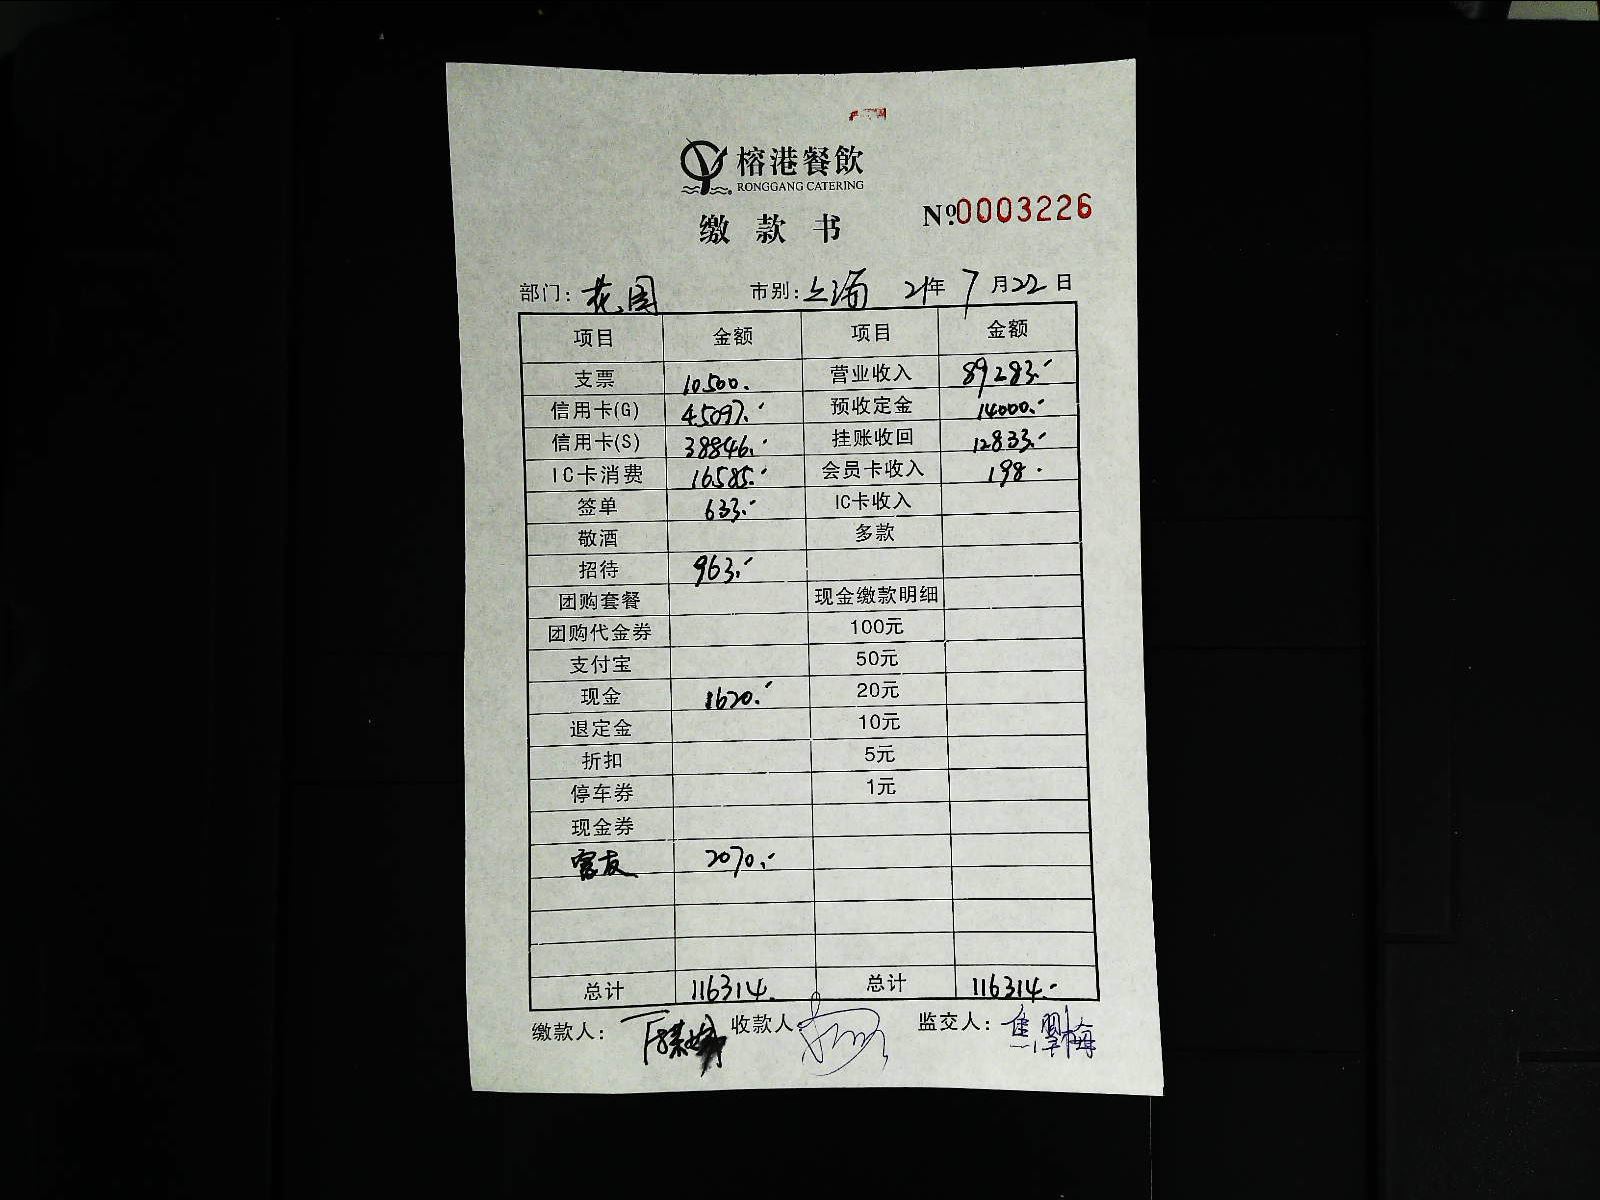 榕港餐飲
RONGGANG CATERING
缴款书 Nº0003226
部门：花园 市别：上海 21年7月22日
项目 金额 项目 金额
支票 10500. 营业收入 89283.-
信用卡(G) 45097.- 预收定金 14000.-
信用卡(S) 38846.- 挂账收回 12833.-
IC卡消费 16585.- 会员卡收入 198.
签单 633.- IC卡收入
敬酒 多款
招待 963.-
团购套餐 现金缴款明细
团购代金券 100元
支付宝 50元
现金 1620.- 20元
退定金 10元
折扣 5元
停车券 1元
现金券
2070.-
总计 116314. 总计 116314.-
缴款人： 收款人 监交人：